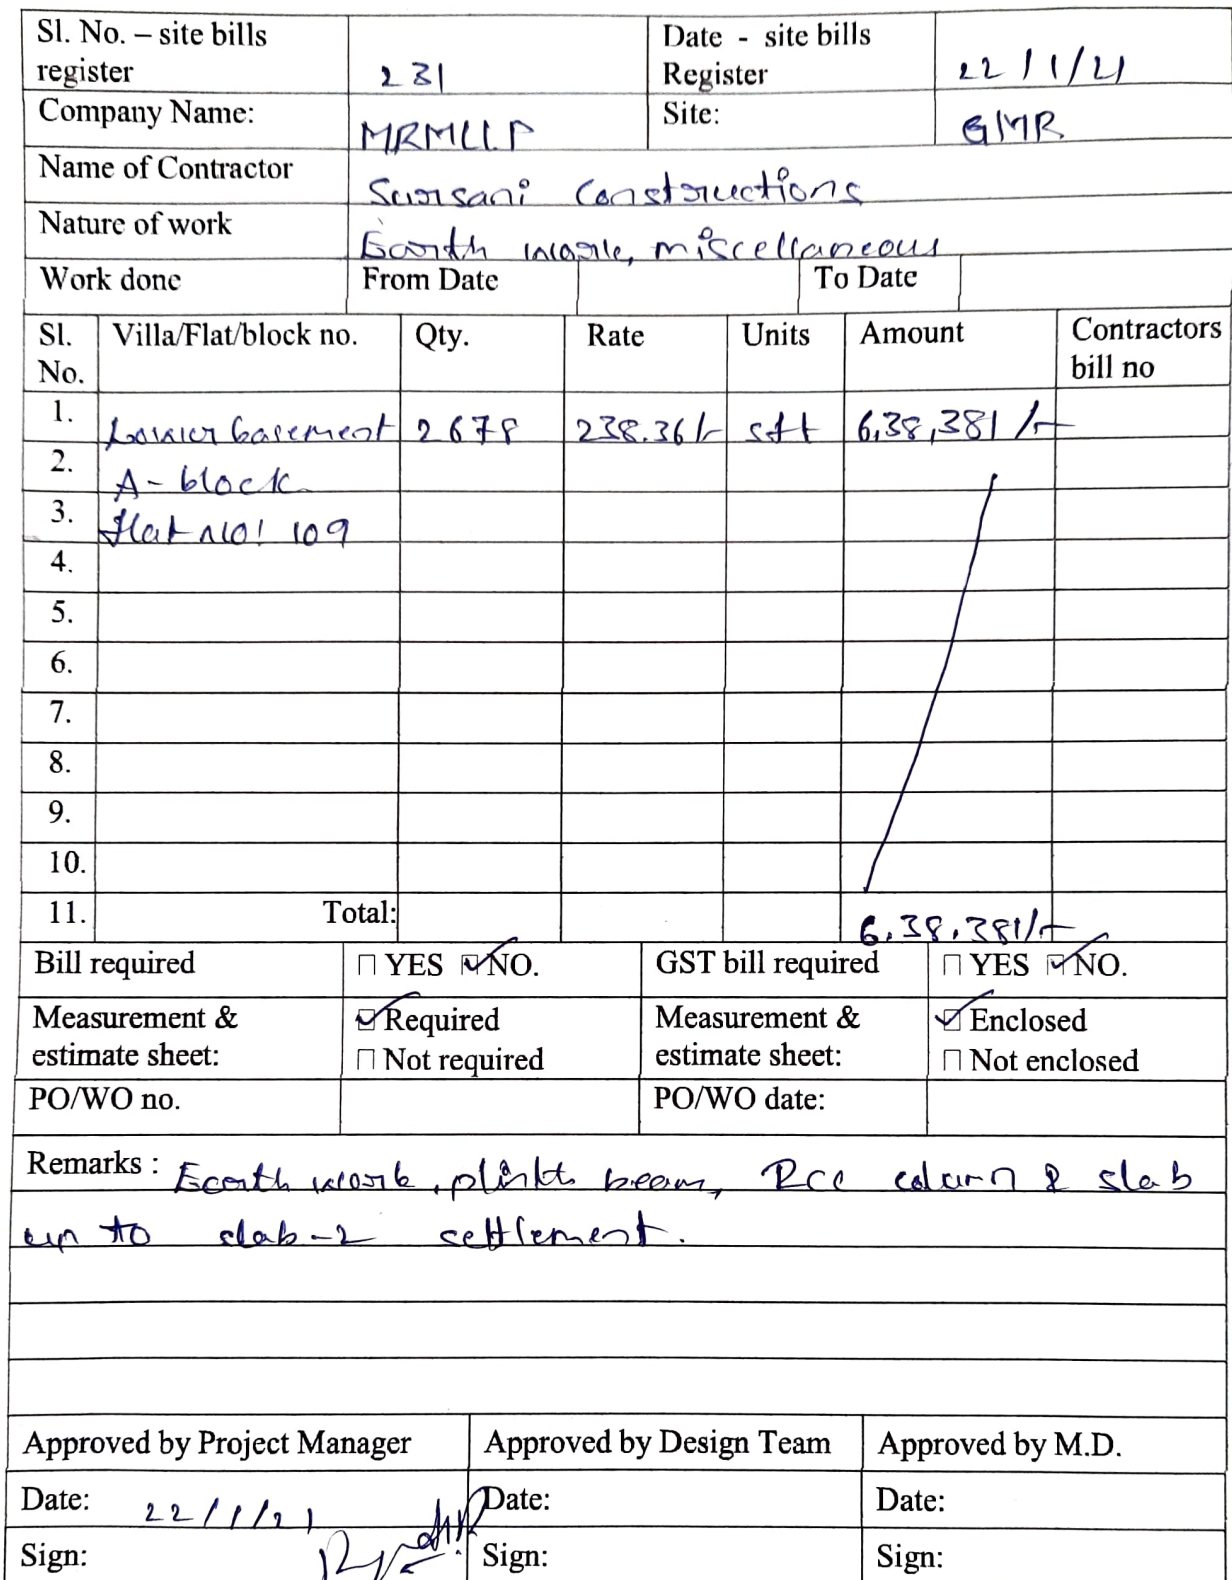 Sl. No. – site bills register 231 Date - site bills Register 22/1/21
Company Name: MRMLLP Site: GMR
Name of Contractor Sarsani Constructions
Nature of work Earth work, miscellaneous
Work done From Date To Date
Sl. No. Villa/Flat/block no. Qty. Rate Units Amount Contractors bill no
1. Lower basement 2678 238.36/- sft 6,38,381/-
2. A-block
3. flat no: 109
4.
5.
6.
7.
8.
9.
10.
11. Total: 6,38,381/-
Bill required YES NO. GST bill required YES NO.
Measurement & estimate sheet: Required Not required Measurement & estimate sheet: Enclosed Not enclosed
PO/WO no. PO/WO date:
Remarks : Earth work, plinth beam, Rcc column & slab
up to slab-2 settlement.
Approved by Project Manager Approved by Design Team Approved by M.D.
Date: 22/1/21 Date: Date:
Sign: Sign: Sign: